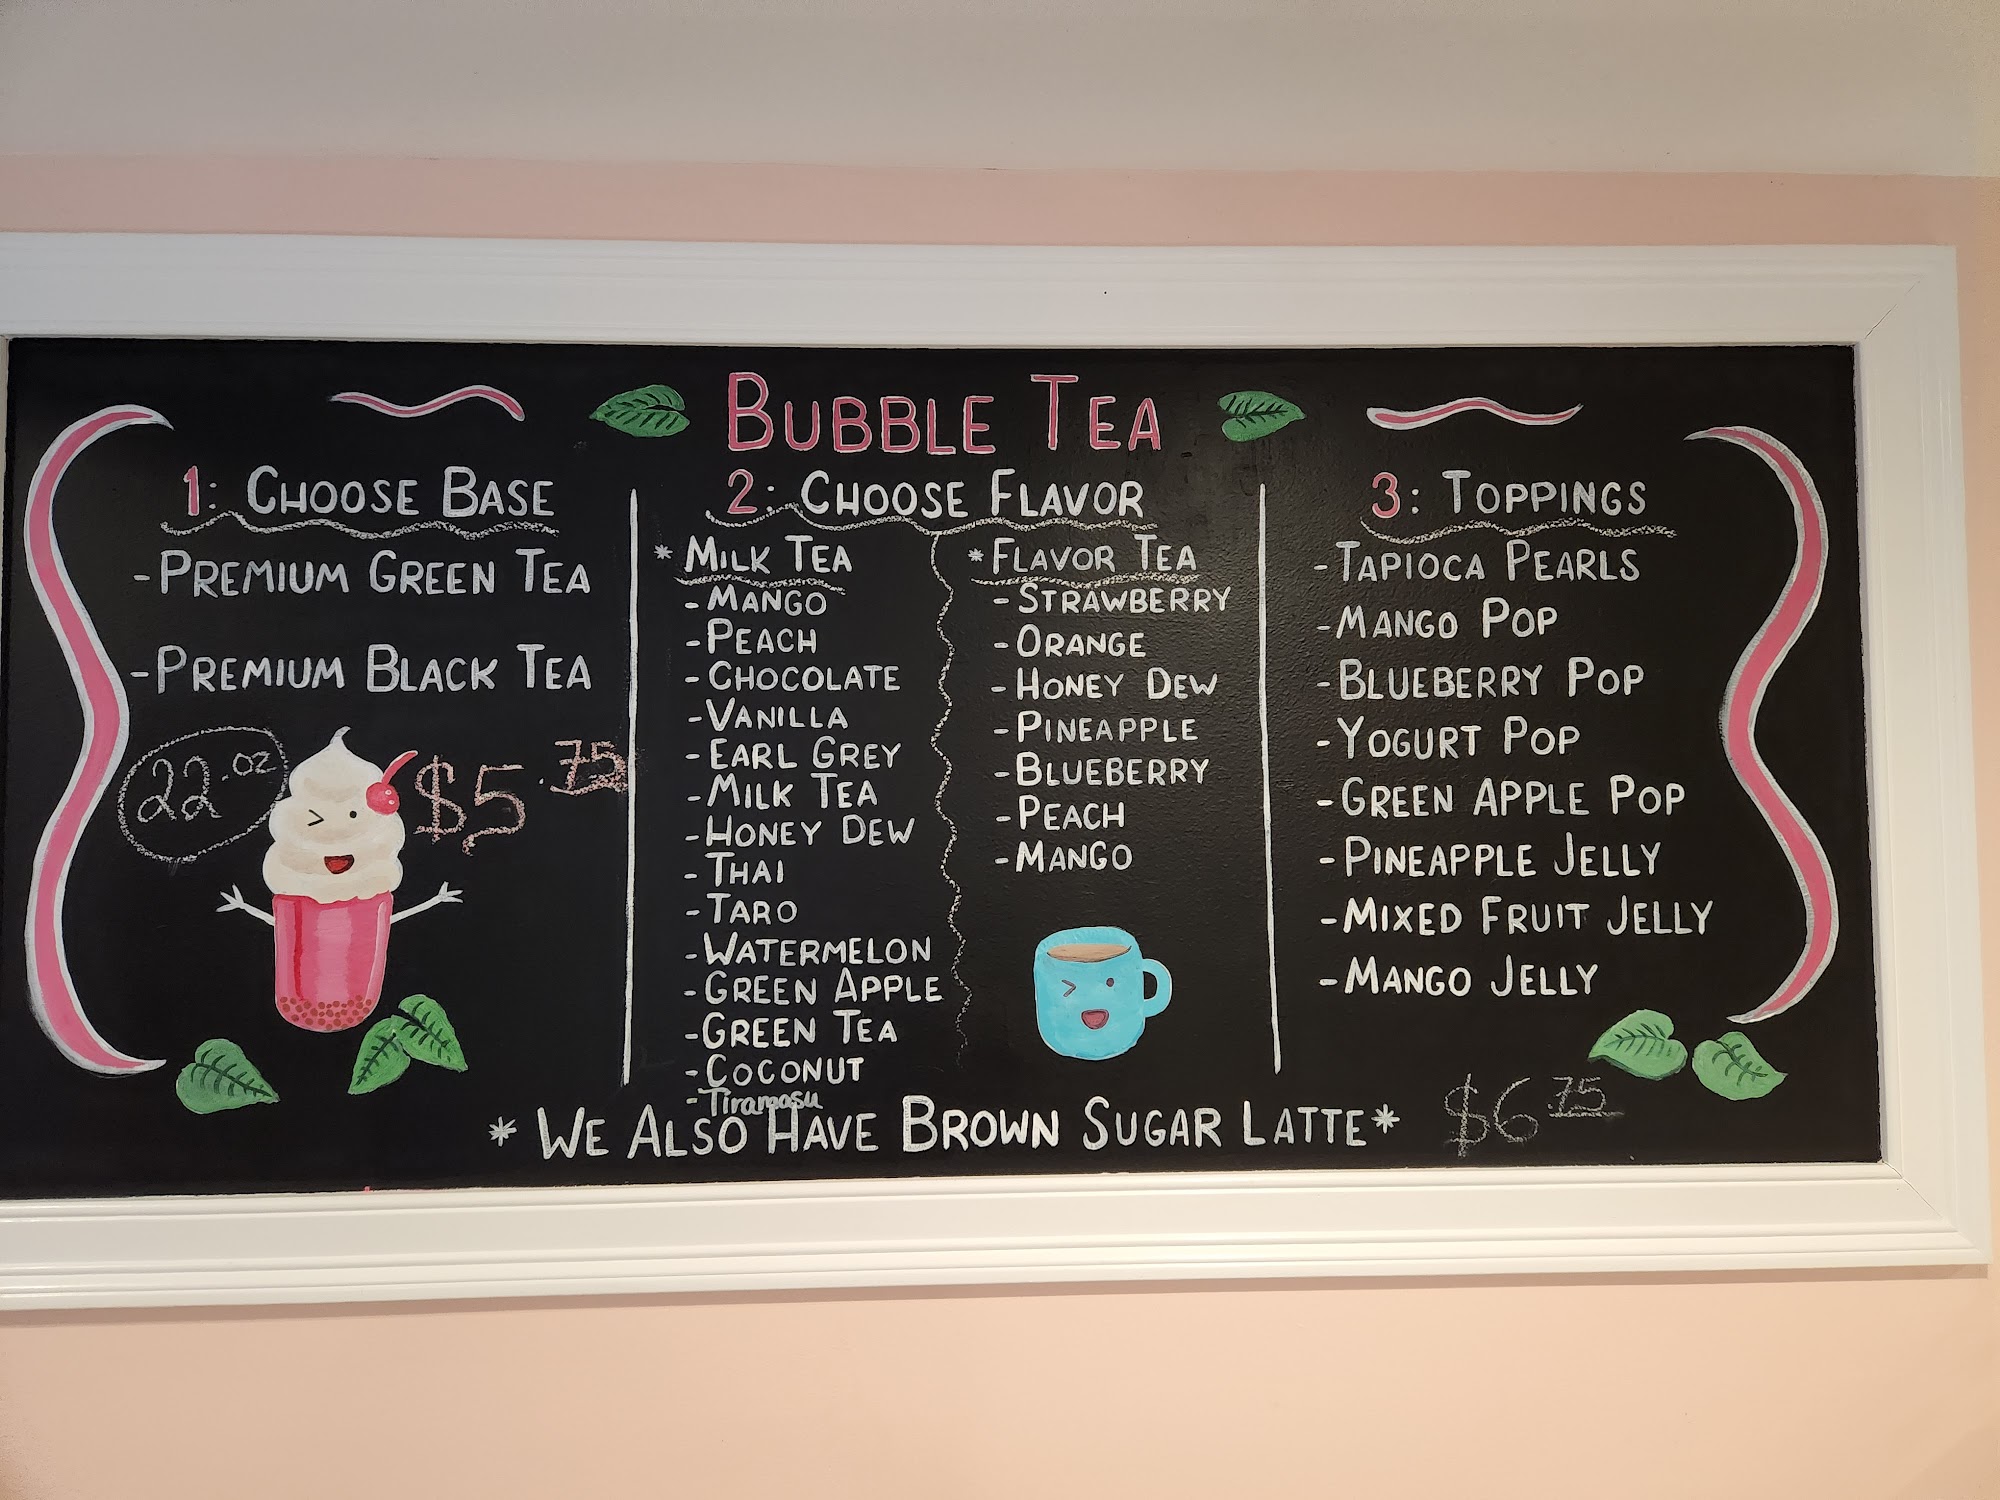 BUBBLE TEA
1: CHOOSE BASE
-PREMIUM GREEN TEA
-PREMIUM BLACK TEA
22.oz
$5.75
2: CHOOSE FLAVOR
*MILK TEA
-MANGO
-PEACH
-CHOCOLATE
-VANILLA
-EARL GREY
-MILK TEA
-HONEY DEW
-THAI
-TARO
-WATERMELON
-GREEN APPLE
-GREEN TEA
-COCONUT
-Tiramasu
*FLAVOR TEA
-STRAWBERRY
-ORANGE
-HONEY DEW
-PINEAPPLE
-BLUEBERRY
-PEACH
-MANGO
3: TOPPINGS
-TAPIOCA PEARLS
-MANGO POP
-BLUEBERRY POP
-YOGURT POP
-GREEN APPLE POP
-PINEAPPLE JELLY
-MIXED FRUIT JELLY
-MANGO JELLY
*WE ALSO HAVE BROWN SUGAR LATTE* $6.75